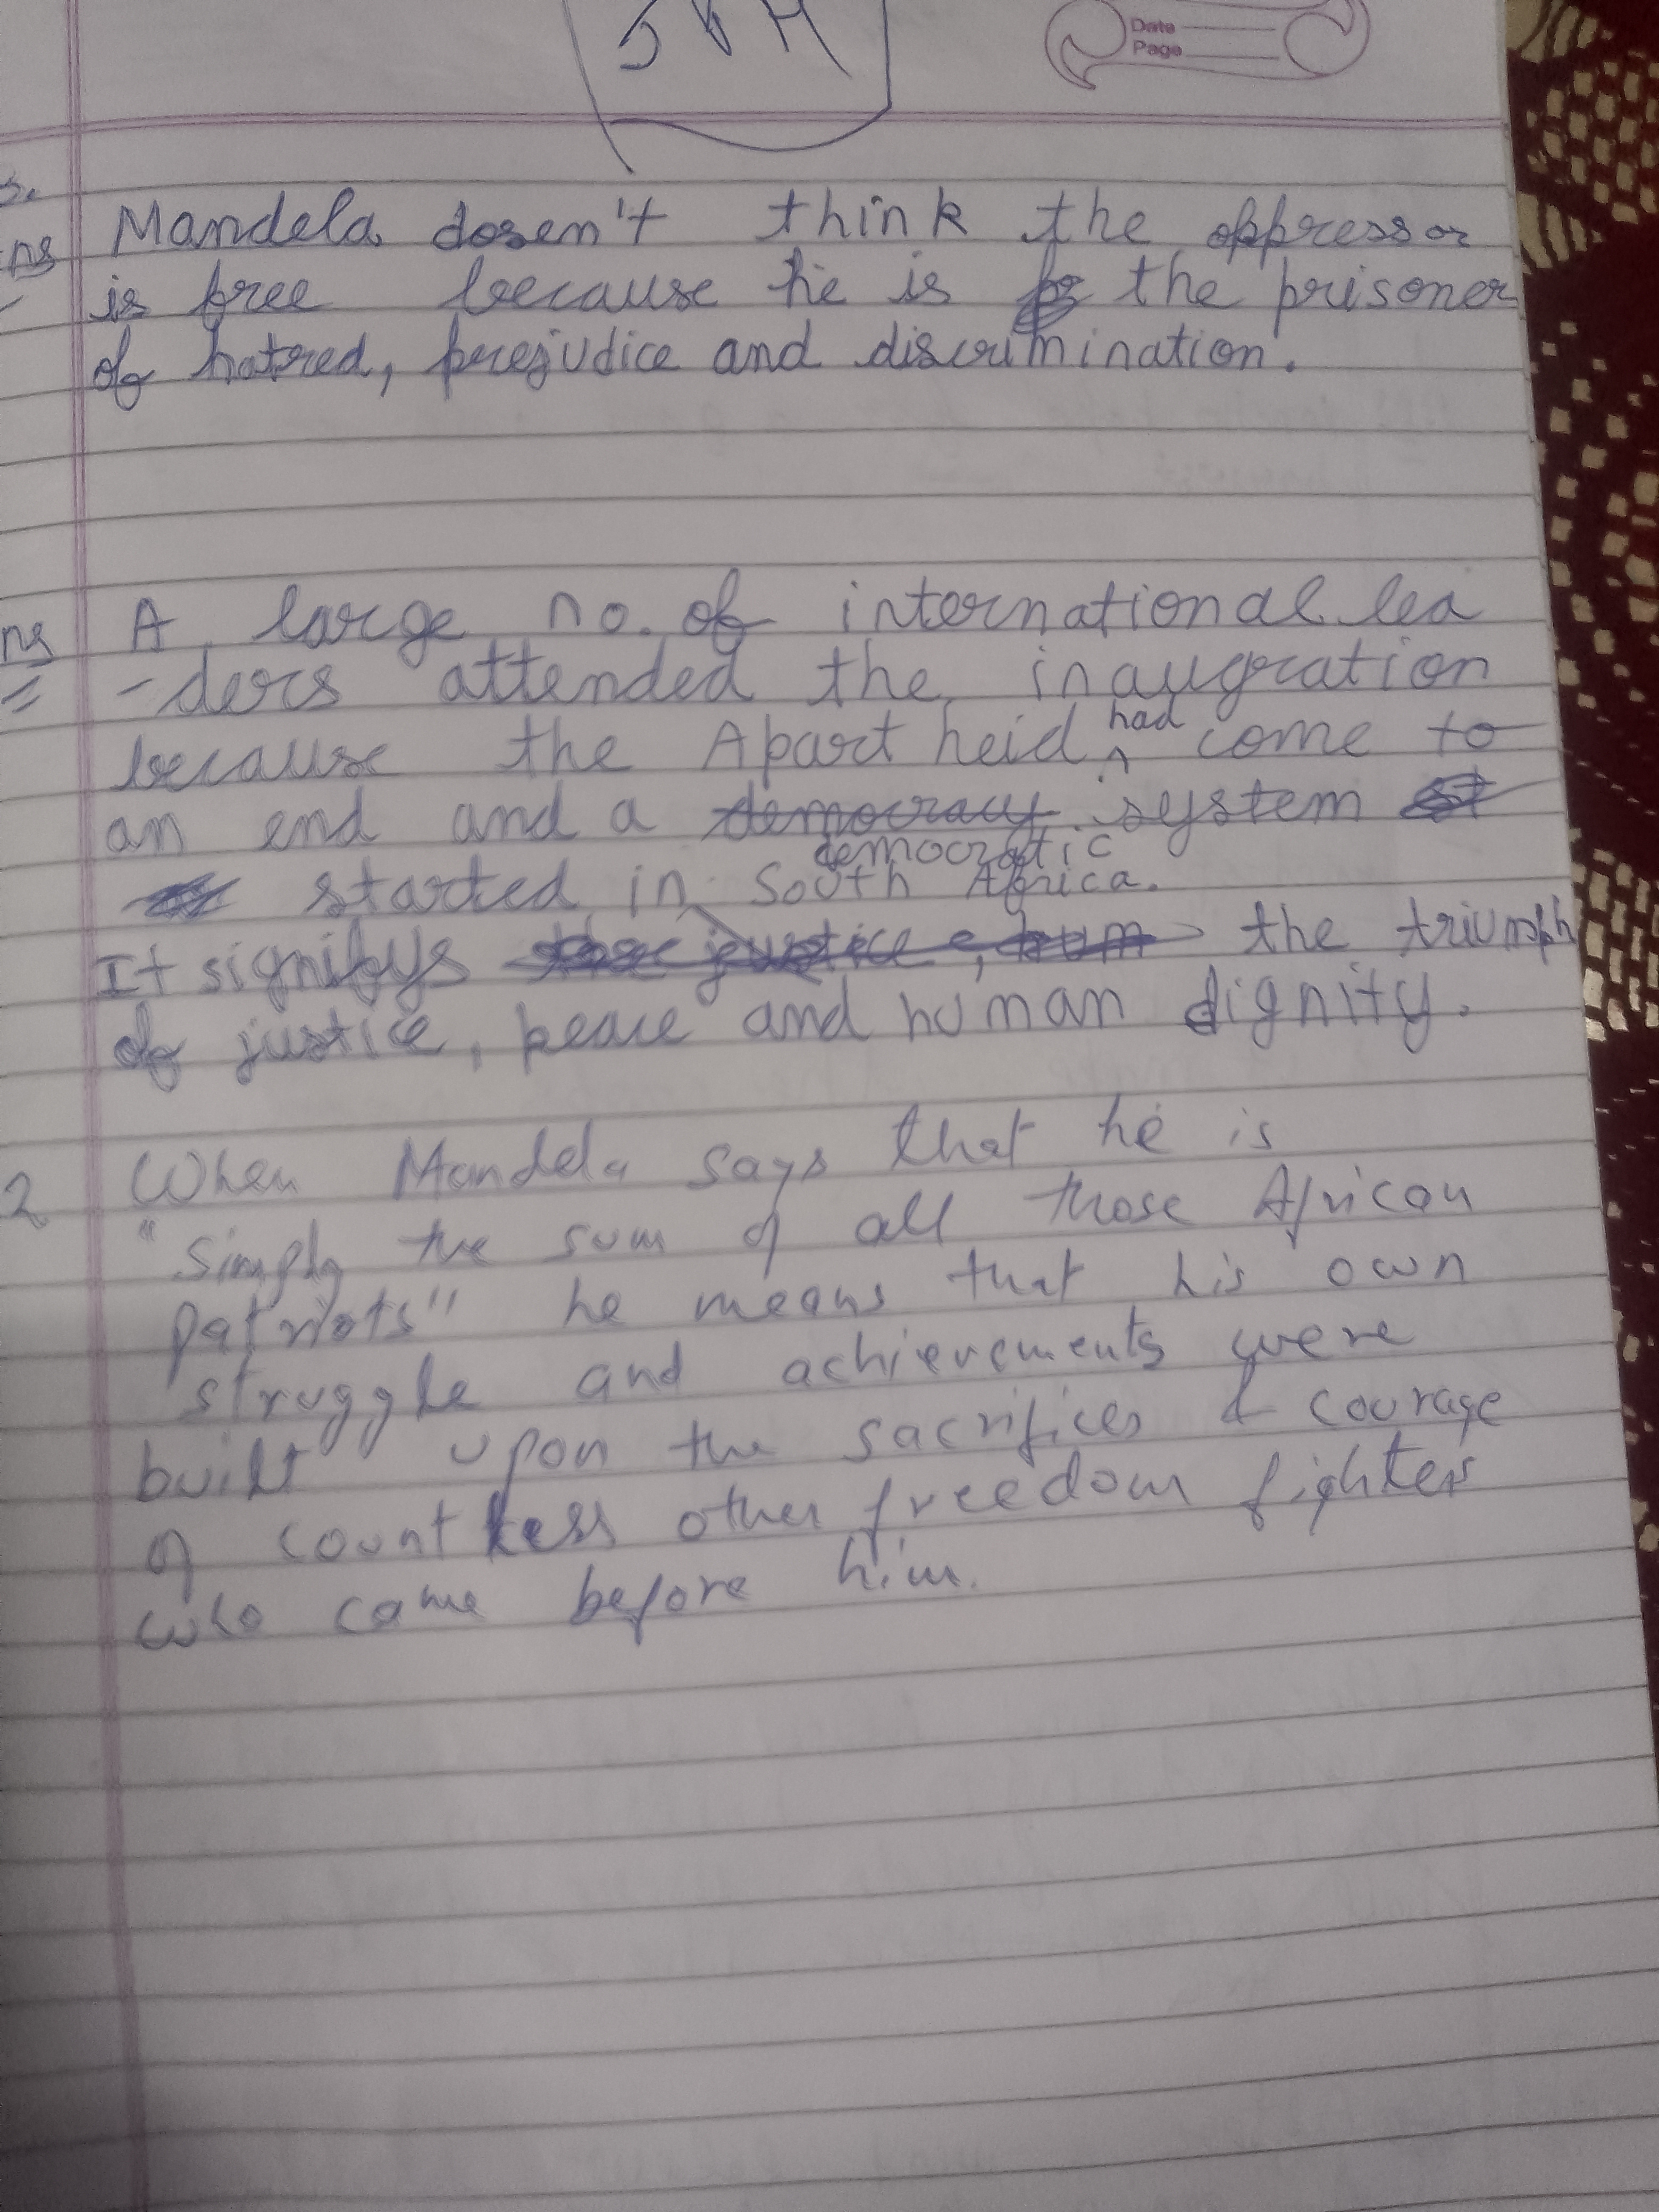 Date
Page
Mandela dosen't think the oppressor
is free because he is the prisoner
of hatred, prejudice and discrimination.
ns A large no. of international lea
-ders attended the inaugration
because the Apart heid had come to
an end and a democracy system
democratic
started in South Africa.
It signifys the triumph
of justice, peace and human dignity.
2 When Mandela says that he is
"simply the sum of all those African
patriots" he means that his own
struggle and achievements were
built upon the sacrifices & courage
of countless other freedom fighters
who came before him.